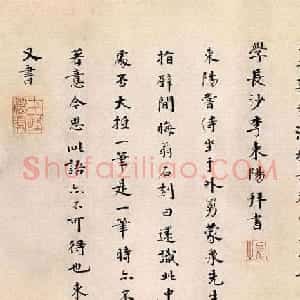 學長沙李東陽拜書
東陽嘗侍坐于外舅蒙泉先生
指壁間晦翁石刻曰還識此中
處否大抵一筆是一筆時亦不
著意今思此語亦不可得也東
又書
Shufaziliao.com